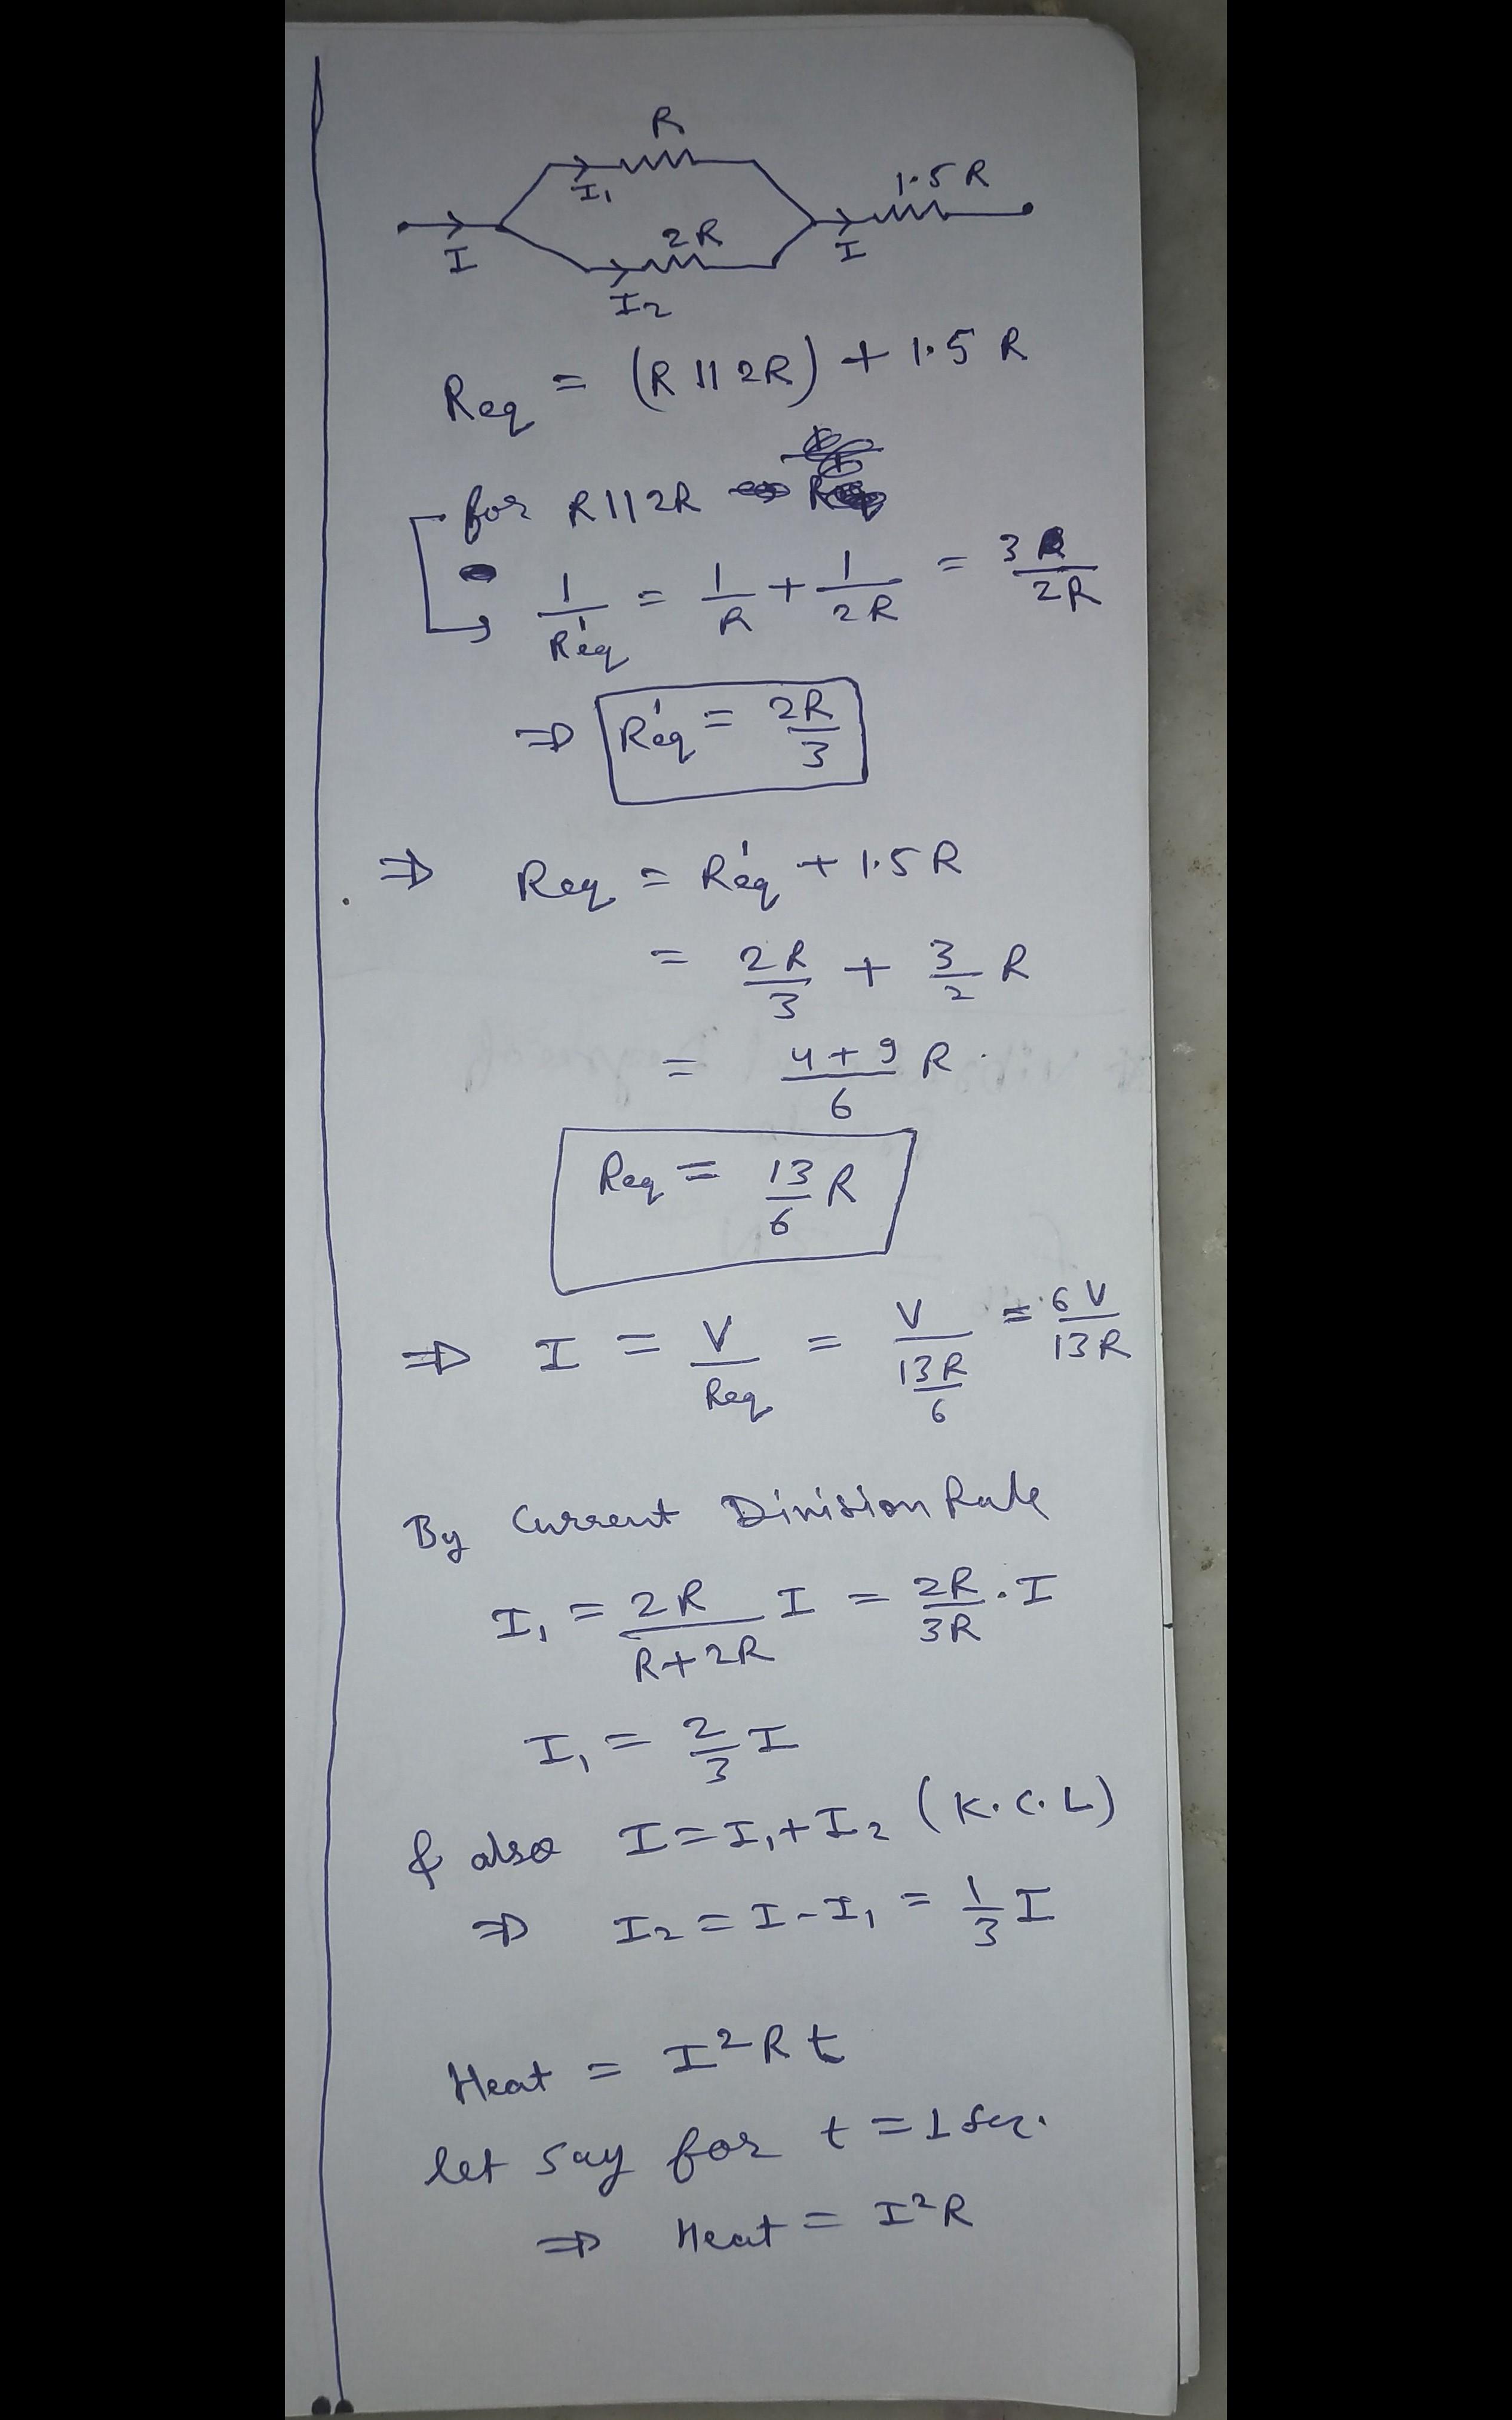 R
1.5 R
I₁
2R
I
I
I₂
Req = (R || 2R) + 1.5 R
for R || 2R
1/R'eq = 1/R + 1/2R = 3/2R
⇒ R'eq = 2R/3
⇒ Req = R'eq + 1.5 R
= 2R/3 + 3/2 R
= 4+9/6 R
Req = 13/6 R
⇒ I = V/Req = V/13R/6 = 6V/13R
By Current Division Rule
I₁ = 2R/R+2R I = 2R/3R . I
I₁ = 2/3 I
& also I = I₁ + I₂ (K.C.L)
⇒ I₂ = I - I₁ = 1/3 I
Heat = I²Rt
let say for t = 1 sec.
⇒ Heat = I²R